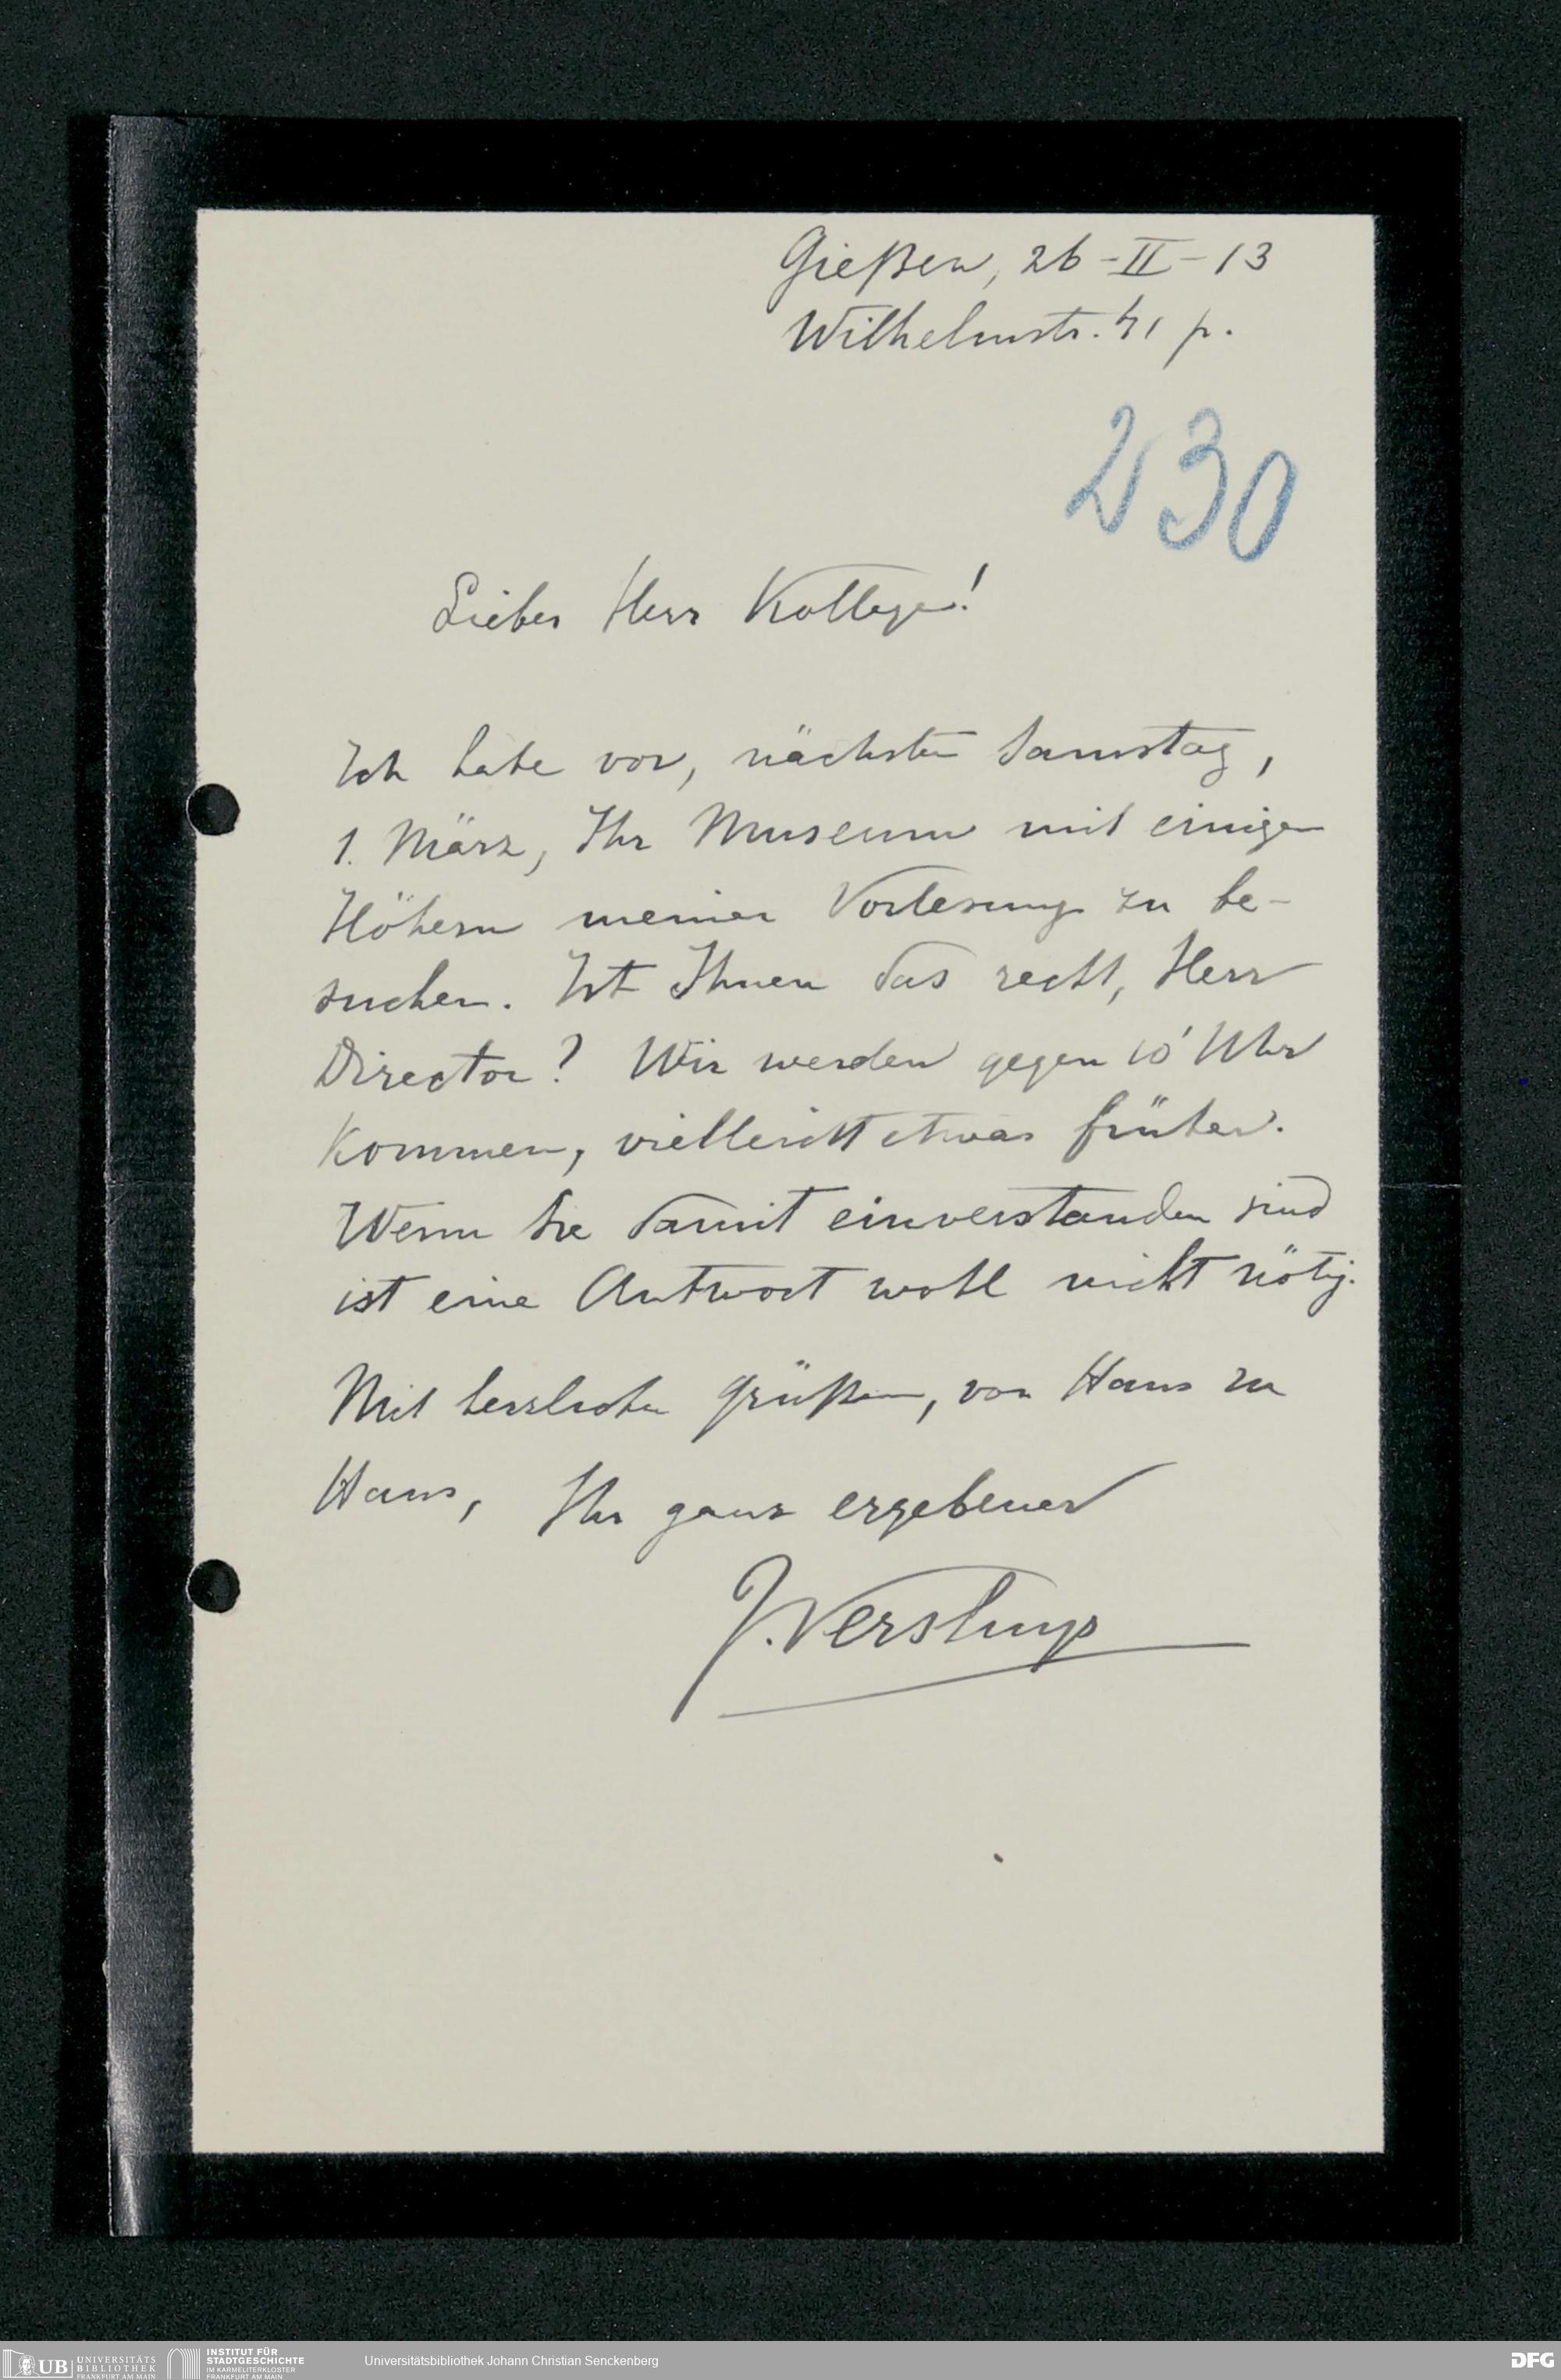 Gießen, 26-II-13
Wilhelmstr. 41 p.
230
Lieber Herr Kollege!
Ich habe vor, nächsten Samstag,
1. März, Ihr Museum mit einigen
Hörern meiner Vorlesung zu be-
suchen. Ist Ihnen das recht, Herr
Director? Wir werden gegen 10 Uhr
kommen, vielleicht etwas früher.
Wenn Sie damit einverstanden sind
ist eine Antwort wohl nicht nötig.
Mit herzlichen Grüßen, von Haus zu
Haus, Ihr ganz ergebener
J. Versluys
UB UNIVERSITÄTS
BIBLIOTHEK
FRANKFURT AM MAIN
INSTITUT FÜR
STADTGESCHICHTE
IM KARMELITERKLOSTER
FRANKFURT AM MAIN
Universitätsbibliothek Johann Christian Senckenberg
DFG